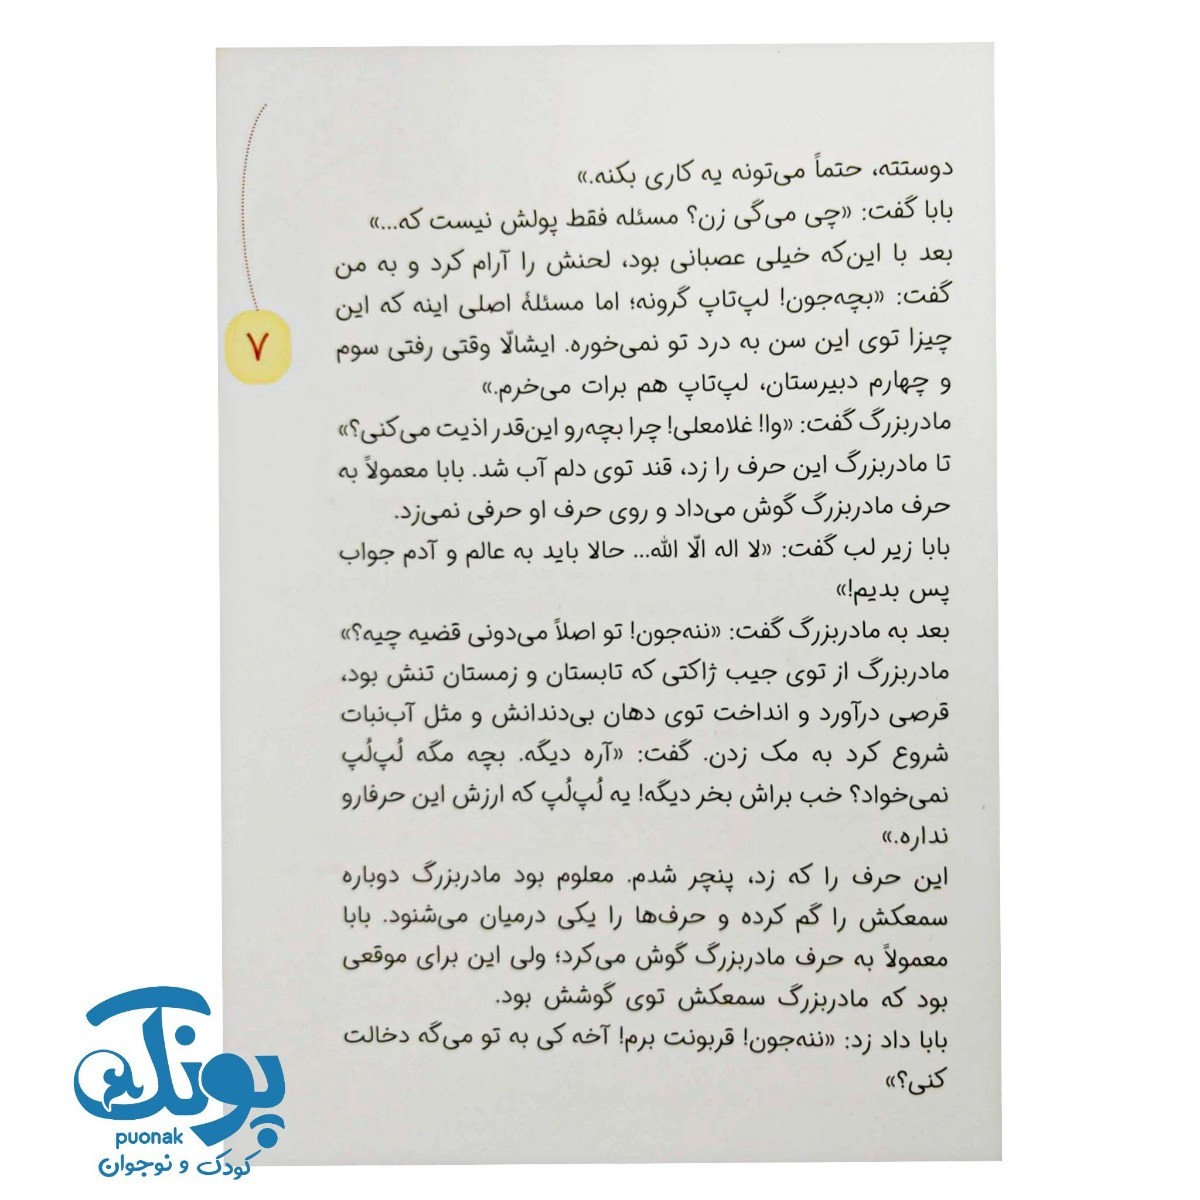 دوستته، حتماً می‌تونه یه کاری بکنه.»
بابا گفت: «چی می‌گی زن؟ مسئله فقط پولش نیست که...»
بعد با این‌که خیلی عصبانی بود، لحنش را آرام کرد و به من
گفت: «بچه‌جون! لپ‌تاپ گرونه؛ اما مسئلهٔ اصلی اینه که این
چیزا توی این سن به درد تو نمی‌خوره. ایشالّا وقتی رفتی سوم
و چهارم دبیرستان، لپ‌تاپ هم برات می‌خرم.»
مادربزرگ گفت: «وا! غلامعلی! چرا بچه‌رو این‌قدر اذیت می‌کنی؟»
تا مادربزرگ این حرف را زد، قند توی دلم آب شد. بابا معمولاً به
حرف مادربزرگ گوش می‌داد و روی حرف او حرفی نمی‌زد.
بابا زیر لب گفت: «لا اله الّا الله... حالا باید به عالم و آدم جواب
پس بدیم!»
بعد به مادربزرگ گفت: «ننه‌جون! تو اصلاً می‌دونی قضیه چیه؟»
مادربزرگ از توی جیب ژاکتی که تابستان و زمستان تنش بود،
قرصی درآورد و انداخت توی دهان بی‌دندانش و مثل آب‌نبات
شروع کرد به مک زدن. گفت: «آره دیگه. بچه مگه لُپ‌لُپ
نمی‌خواد؟ خب براش بخر دیگه! یه لُپ‌لُپ که ارزش این حرفارو
نداره.»
این حرف را که زد، پنچر شدم. معلوم بود مادربزرگ دوباره
سمعکش را گم کرده و حرف‌ها را یکی درمیان می‌شنود. بابا
معمولاً به حرف مادربزرگ گوش می‌کرد؛ ولی این برای موقعی
بود که مادربزرگ سمعکش توی گوشش بود.
بابا داد زد: «ننه‌جون! قربونت برم! آخه کی به تو می‌گه دخالت
کنی؟»
۷
پونک
puonak
کودک و نوجوان